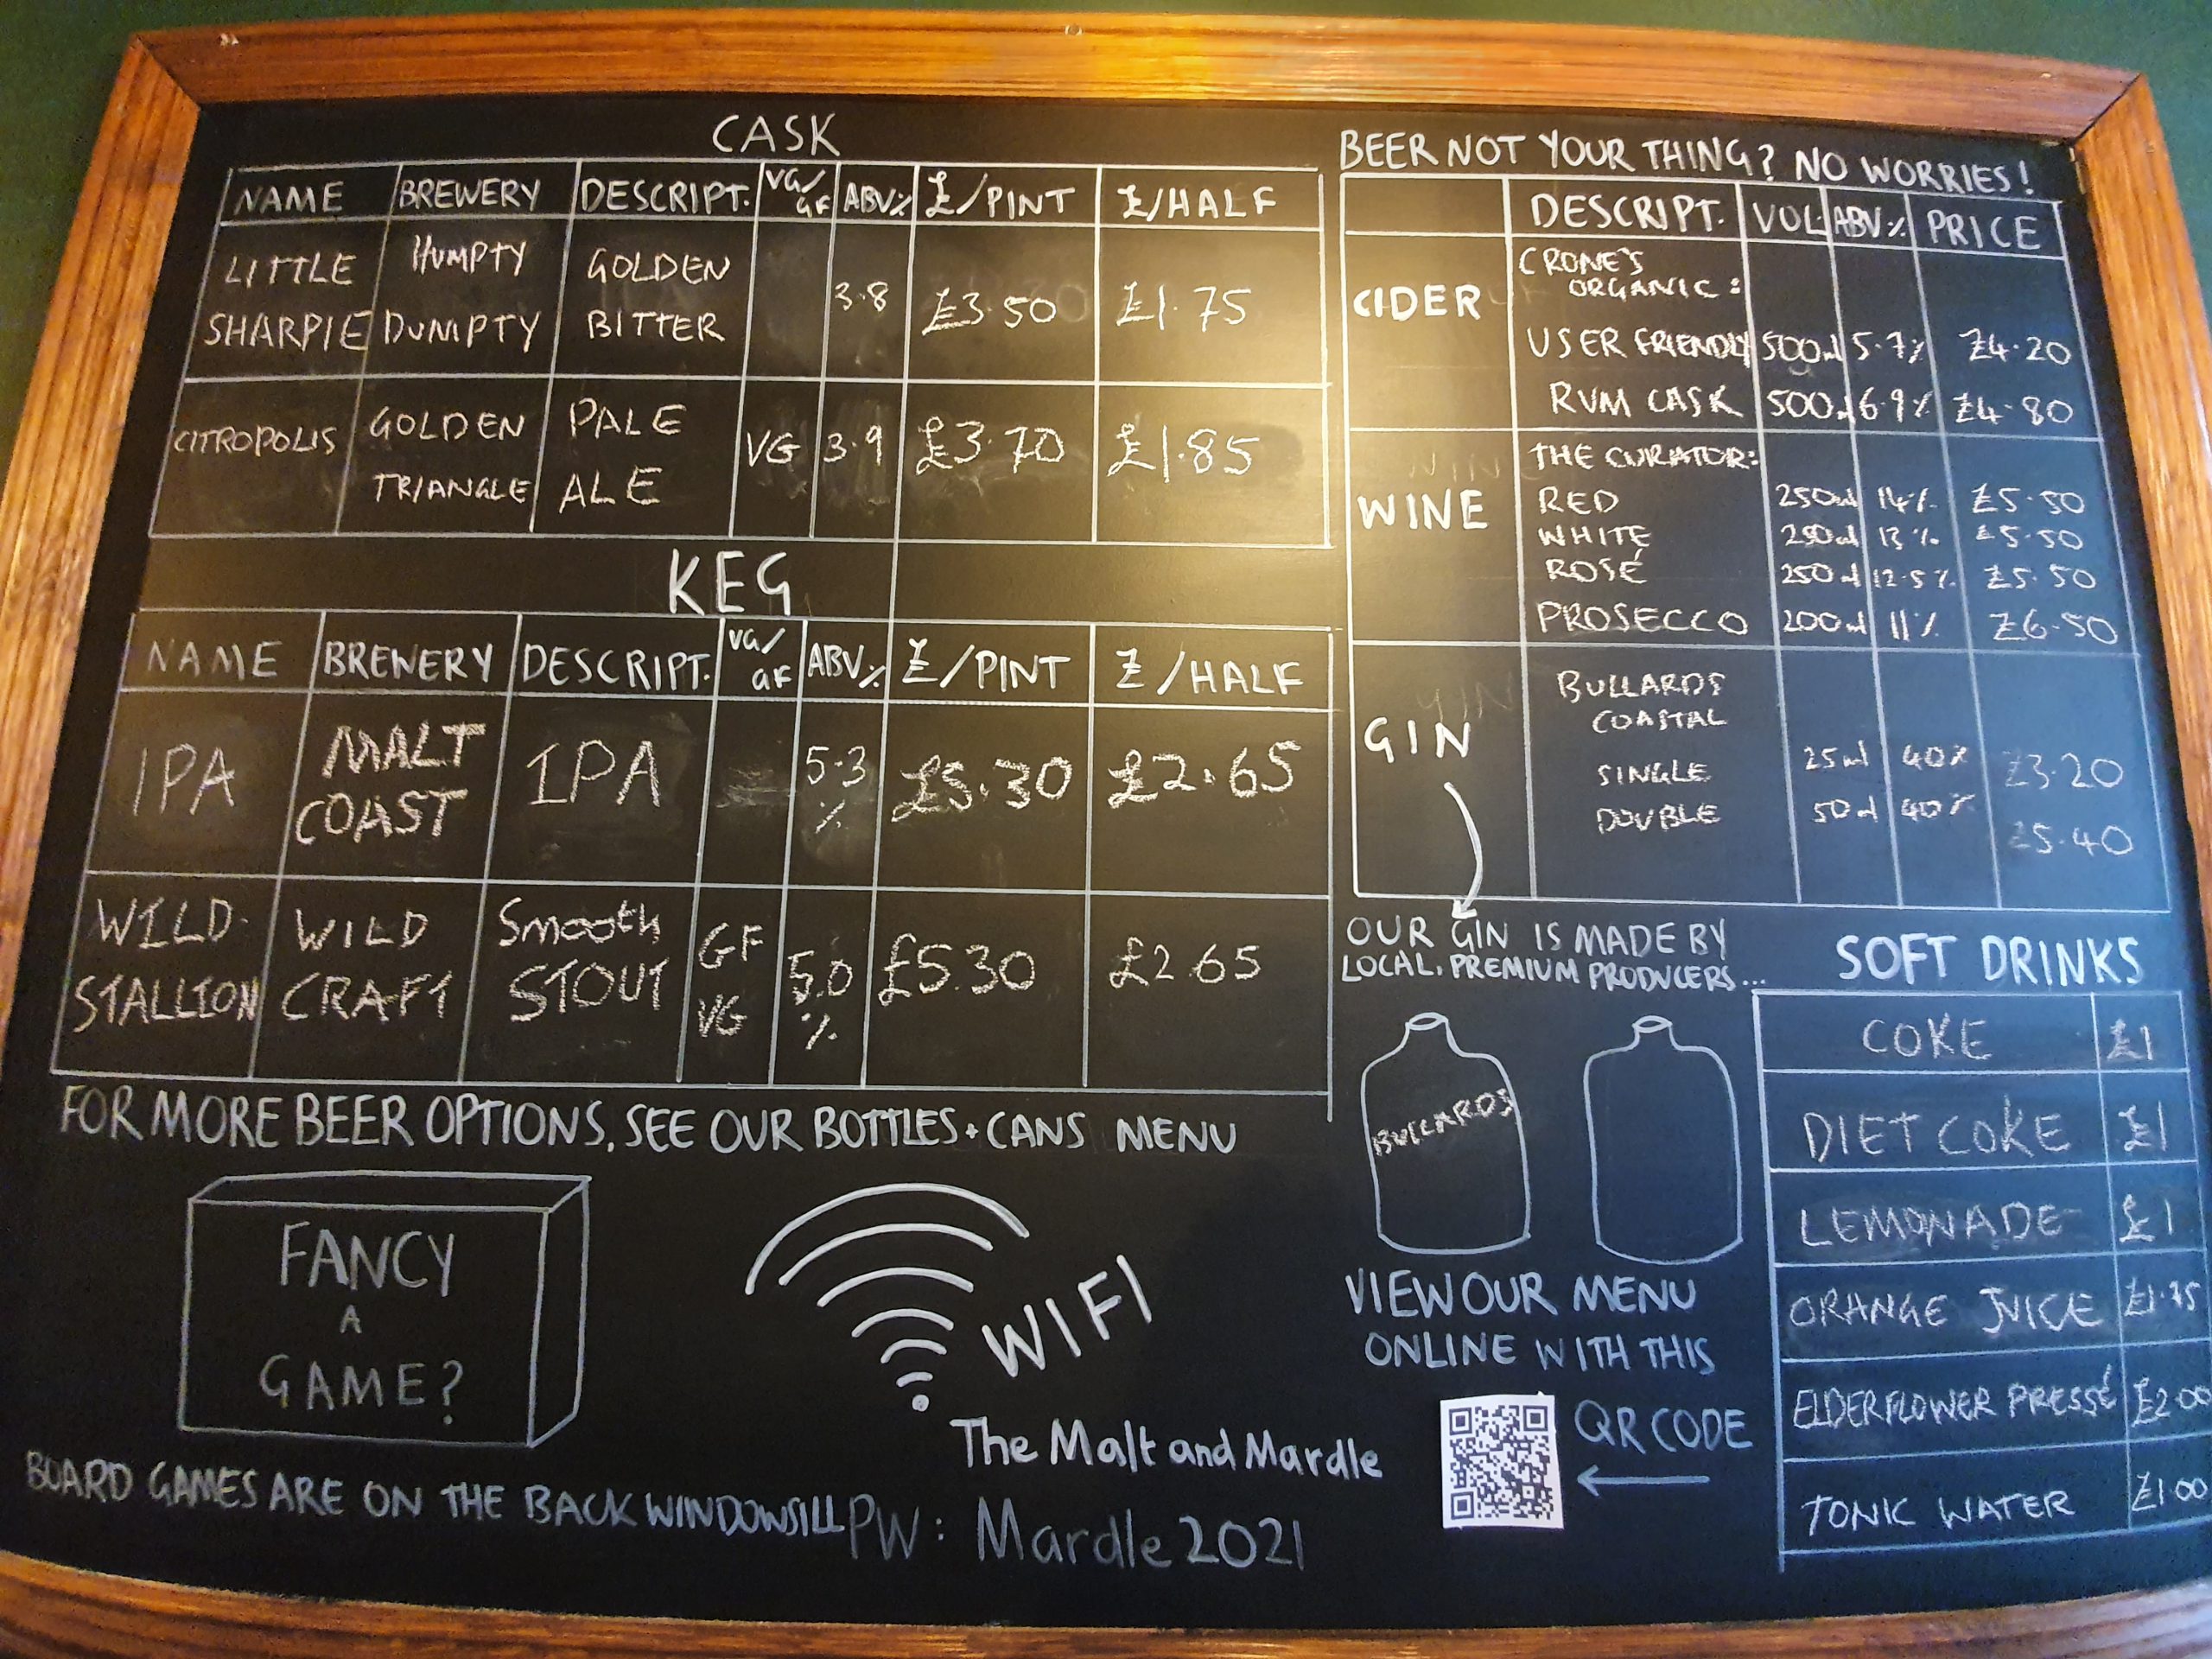 CASK
NAME BREWERY DESCRIPT. VG/GF ABV% £/PINT £/HALF
LITTLE SHARPIE HUMPTY DUMPTY GOLDEN BITTER 3.8 £3.50 £1.75
CITROPOLIS GOLDEN TRIANGLE PALE ALE VG 3.9 £3.70 £1.85
KEG
NAME BREWERY DESCRIPT. VG/GF ABV% £/PINT £/HALF
IPA MALT COAST IPA 5.3% £5.30 £2.65
WILD STALLION WILD CRAFT Smooth STOUT GF VG 5.0% £5.30 £2.65
FOR MORE BEER OPTIONS, SEE OUR BOTTLES + CANS MENU
FANCY
A
GAME?
BOARD GAMES ARE ON THE BACK WINDOWSILL
WIFI
The Malt and Mardle
PW: Mardle2021
BEER NOT YOUR THING? NO WORRIES!
DESCRIPT. VOL. ABV% PRICE
CIDER
CRONE'S
ORGANIC:
USER FRIENDLY 500ml 5.7% £4.20
RUM CASK 500ml 6.9% £4.80
WINE
THE CURATOR:
RED 250ml 14% £5.50
WHITE 250ml 13% £5.50
ROSÉ 250ml 12.5% £5.50
PROSECCO 200ml 11% £6.50
GIN
BULLARDS
COASTAL
SINGLE 25ml 40% £3.20
DOUBLE 50ml 40% £5.40
OUR GIN IS MADE BY
LOCAL, PREMIUM PRODUCERS...
BULLARDS
VIEW OUR MENU
ONLINE WITH THIS
QR CODE
SOFT DRINKS
COKE £1
DIET COKE £1
LEMONADE £1
ORANGE JUICE
ELDERFLOWER PRESSÉ £2.00
TONIC WATER £1.00